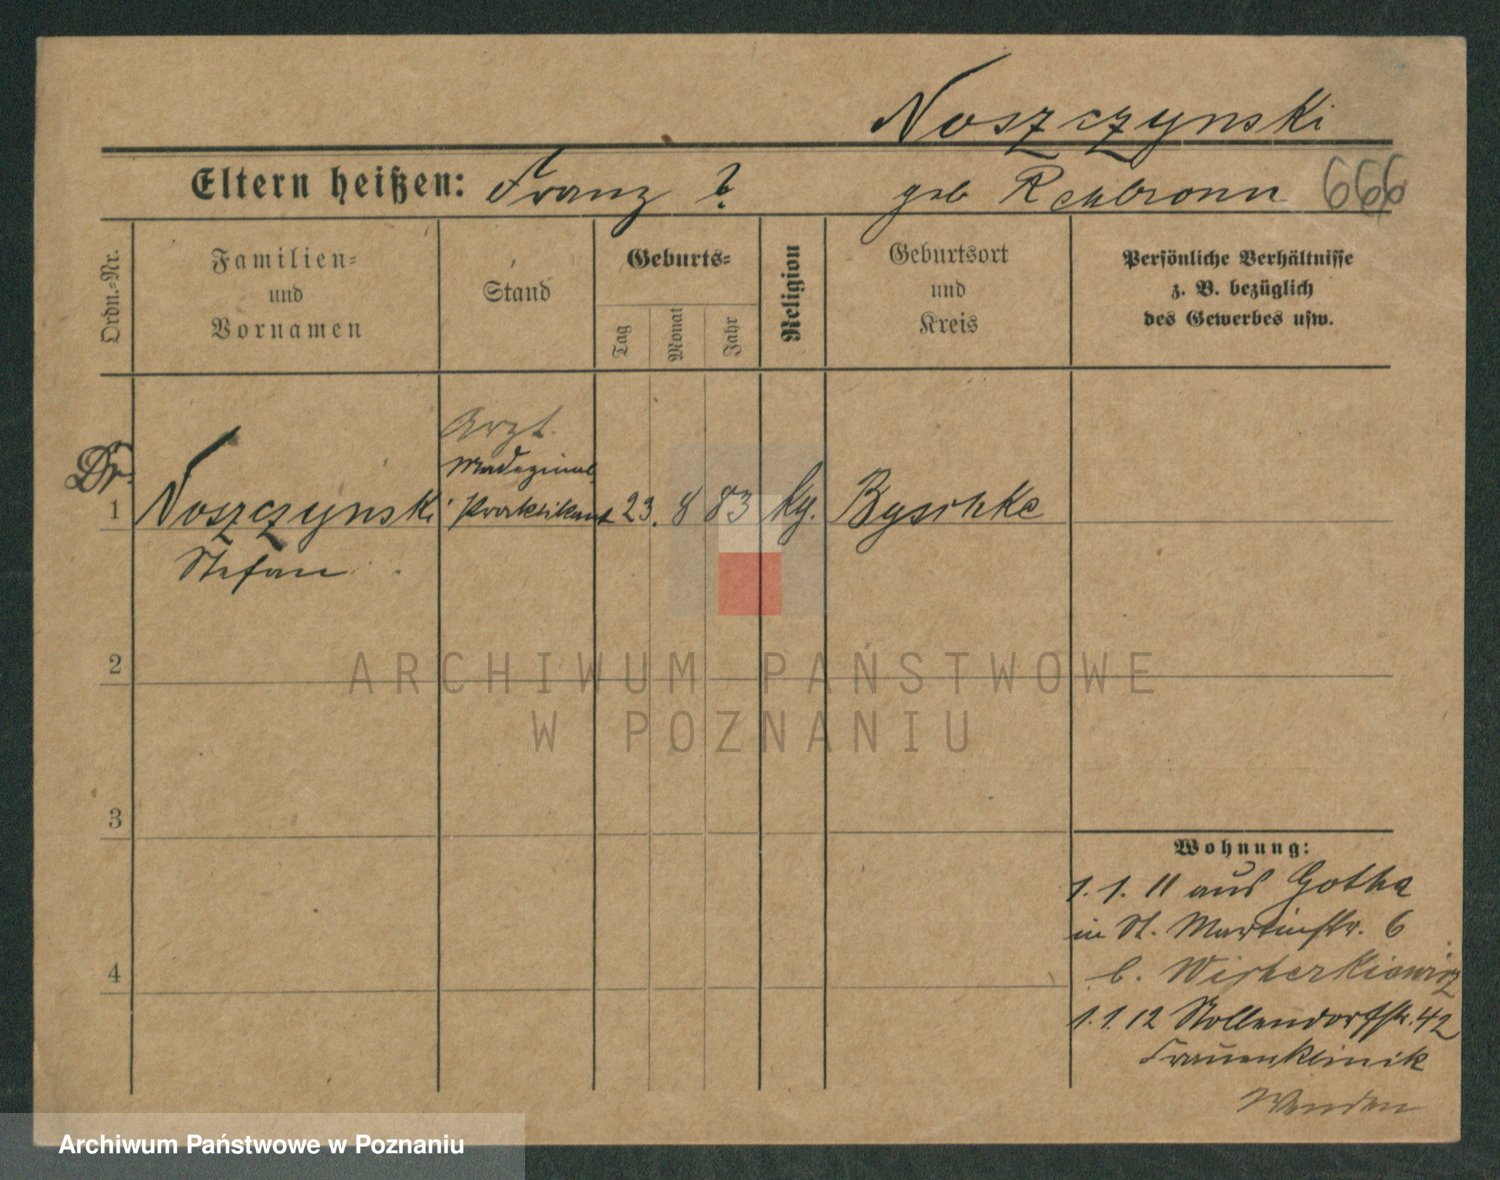 Noszczynski
Eltern heißen: Franz ? geb Rehbronn 666
Ordn.-Nr.
Familien-
und
Vornamen
Stand
Geburts-
Tag
Monat
Jahr
Religion
Geburtsort
und
Kreis
Persönliche Verhältnisse
z. B. bezüglich
des Gewerbes usw.
Arzt.
Medizinal
Dr.
1 Noszczynski Praktikant 23. 8 83 kg. Byschke
Stefan
2
ARCHIWUM PAŃSTWOWE
W POZNANIU
3
Wohnung:
1. 1. 11 aus Gotha
in St. Martinstr. 6
b.
4
1. 1. 12 Nollendorfstr. 42
Frauenklinik
Archiwum Państwowe w Poznaniu